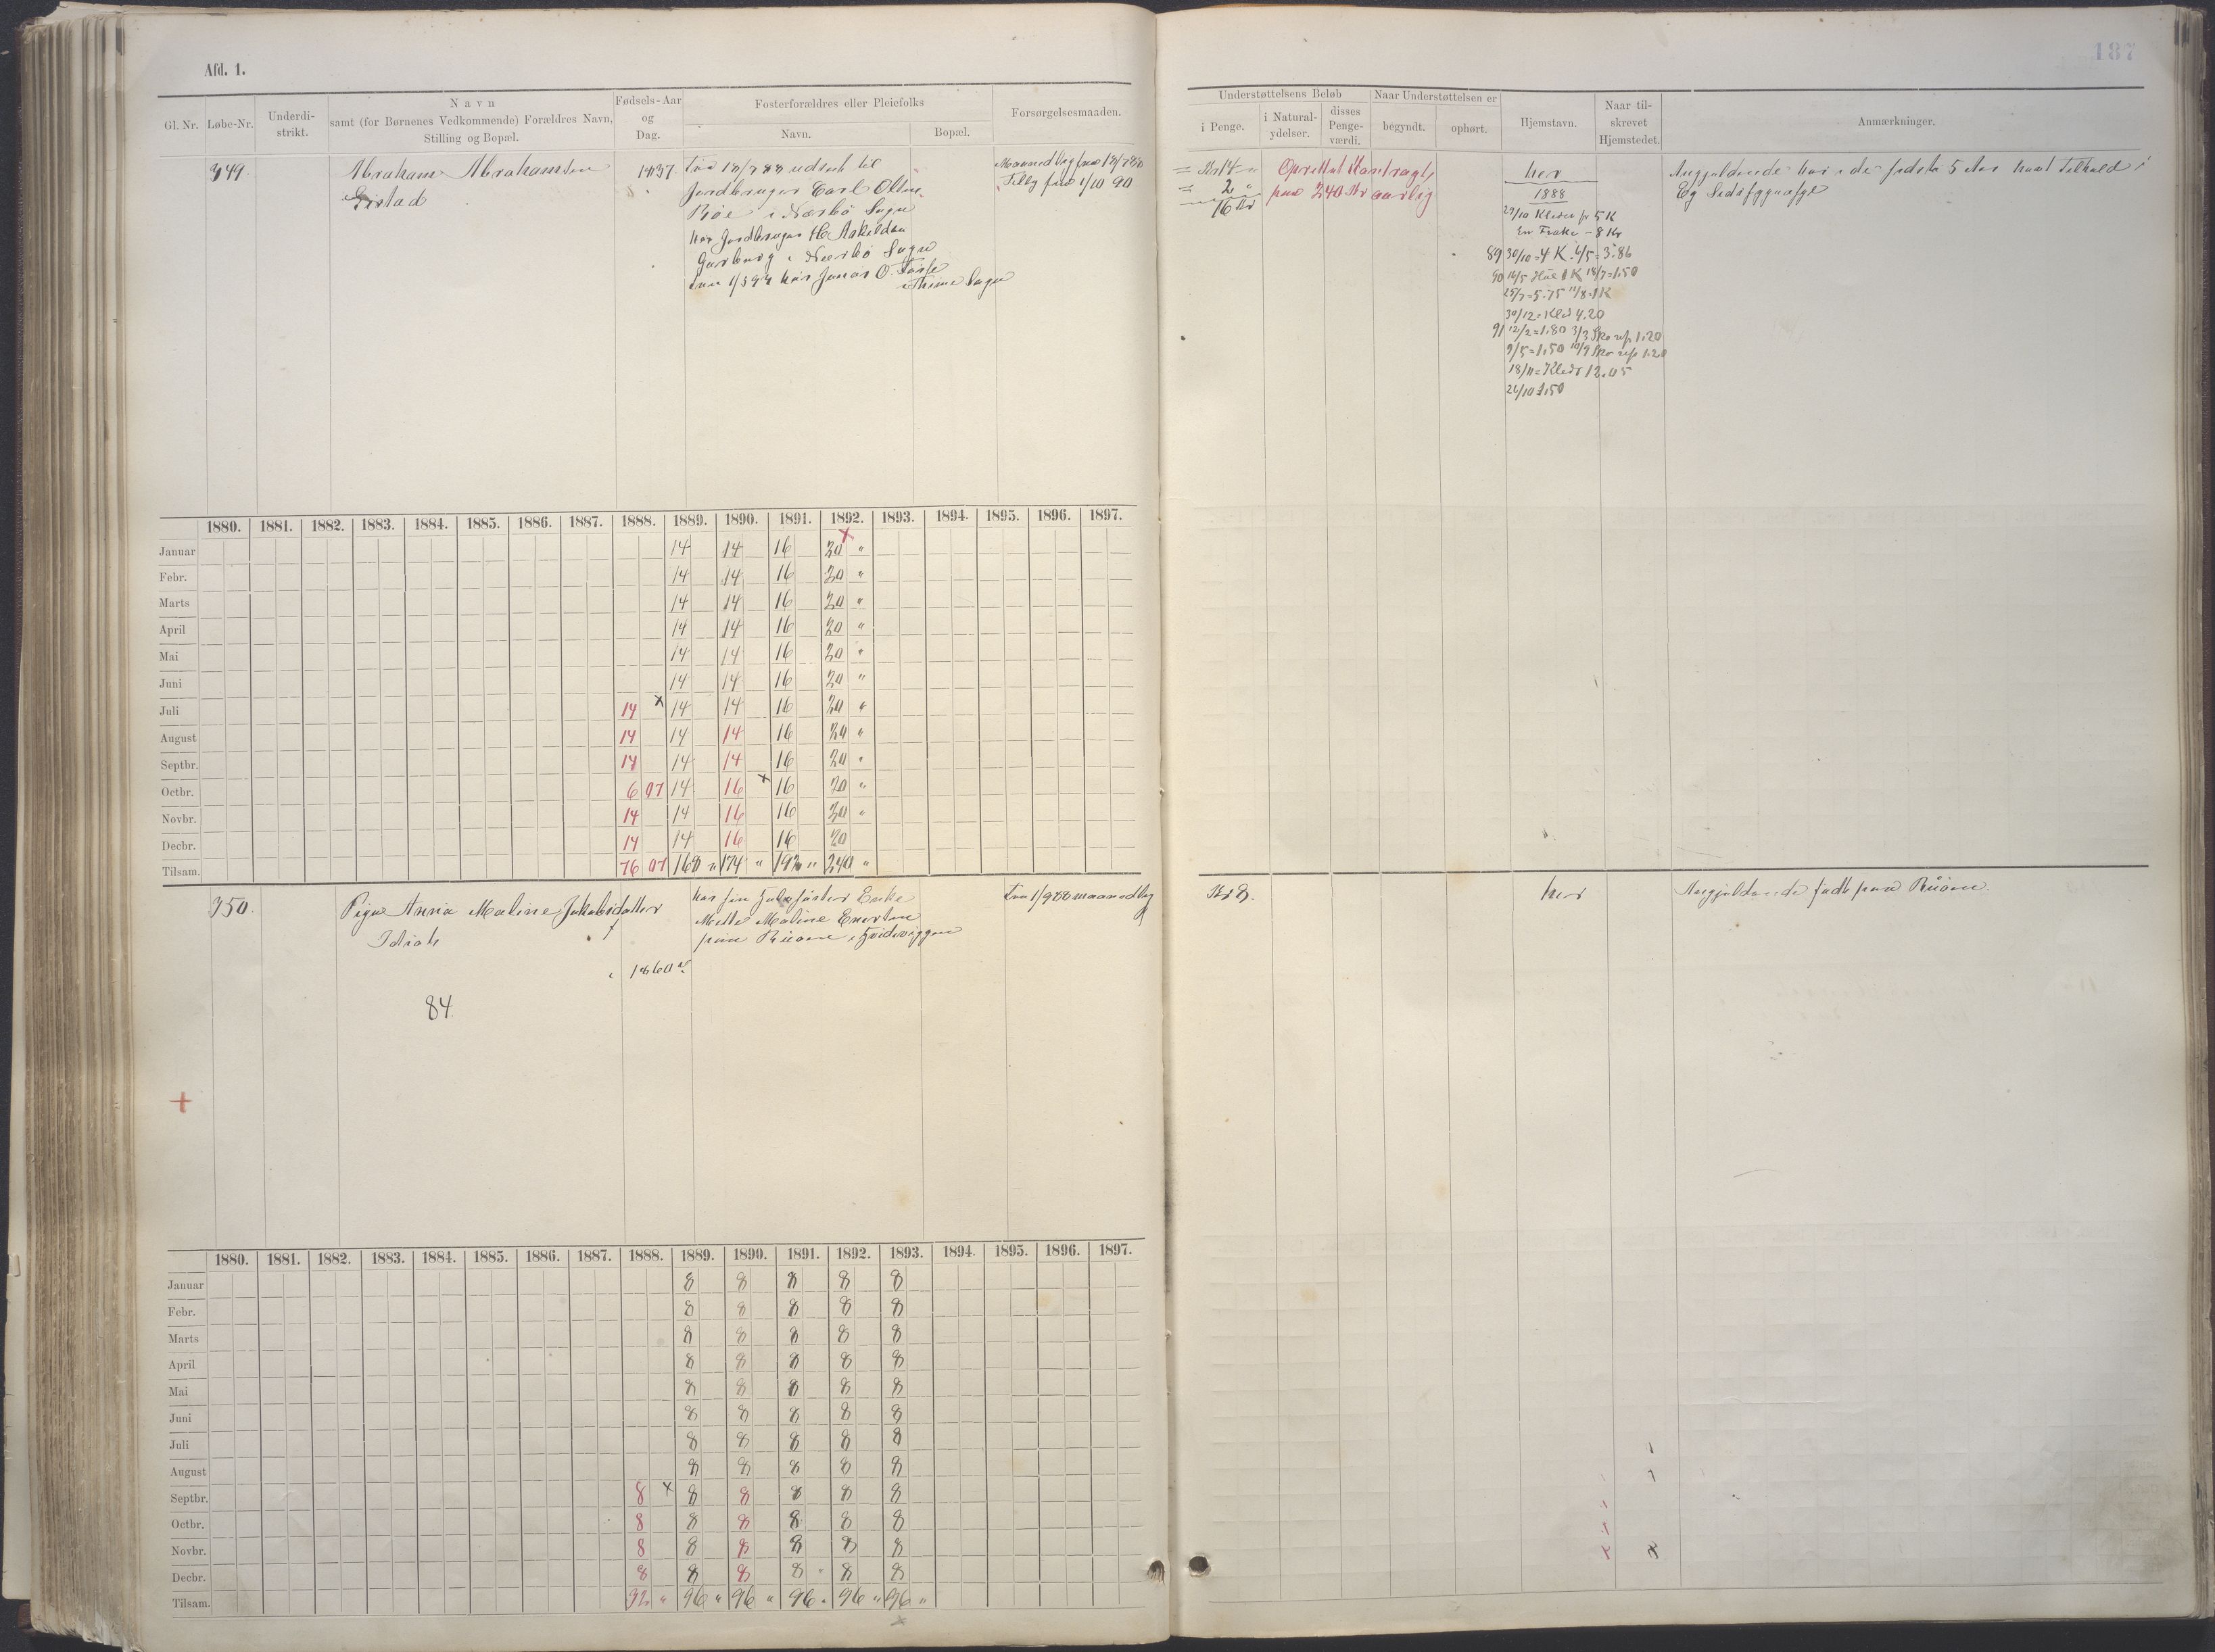 Afd. 1.
187
Gl. Nr. Løbe-Nr. Underdi-strikt. Navn samt (for Børnenes Vedkommende) Forældres Navn, Stilling og Bopæl. Fødsels-Aar og Dag. Fosterforældres eller Pleiefolks Navn. Bopæl. Forsørgelsesmaaden.
Understøttelsens Beløb i Penge. i Natural-ydelser. disses Penge-værdi. Naar Understøttelsen er begyndt. ophørt. Hjemstavn. Naar til-skrevet Hjemstedet. Anmærkninger.
349. Abraham Abrahamsen
1837
Fra 18/7 88 udsat til
Jordbruger Carl Olsen
i Nærbø Sogn
hos Jordbruger
i Nærbø Sogn
hos Jonas O.
Thime Sogn
Maanedlig fra 18/7 88
Tillæg fra 1/10 90
= Kr 14 "
= 2 "
16 Kr
Oprettet Kontragt
paa 240 Kr aarlig
her
1888
29/10 Klæder for 5 K
En Frakke - 8 Kr
89 30/10 = 4 K 4/5 = 3.86
90 14/5 1 K 18/7 = 1.50
25/7 = 5.75 11/8 1 K
30/12 = Klæd 4.20
91 12/2 = 1.80 3/3 Sko rep 1.20
9/5 = 1.50 10/9 Sko rep 1.20
18/11 = Klæder 12.05
26/10 1.50
Angjældende har i de sidste 5 Aar havt Tilhold i
1880. 1881. 1882. 1883. 1884. 1885. 1886. 1887. 1888. 1889. 1890. 1891. 1892. 1893. 1894. 1895. 1896. 1897.
Januar 14 14 16 20 "
Febr. 14 14 16 20 "
Marts 14 14 16 20 "
April 14 14 16 20 "
Mai 14 14 16 20 "
Juni 14 14 16 20 "
Juli 14 x 14 14 16 20 "
August 14 14 14 16 20 "
Septbr. 14 14 14 16 20 "
Octbr. 6 07 14 16 x 16 20 "
Novbr. 14 14 16 16 20 "
Decbr. 14 14 16 16 20
Tilsam. 76 07 168 " 174 " 192 " 240 "
350. Pige Anna Maline Jakobsdatter
Idiot
1860
84
hos sin Enke
Mette Maline
paa
Fra 1/9 88 maanedlig
Kr 8.
her
Angjældende født paa
1880. 1881. 1882. 1883. 1884. 1885. 1886. 1887. 1888. 1889. 1890. 1891. 1892. 1893. 1894. 1895. 1896. 1897.
Januar 8 8 8 8 8
Febr. 8 8 8 8 8
Marts 8 8 8 8 8
April 8 8 8 8 8
Mai 8 8 8 8 8
Juni 8 8 8 8 8
Juli 8 8 8 8 8
August 8 8 8 8 8
Septbr. 8 x 8 8 8 8 8
Octbr. 8 8 8 8 8 8
Novbr. 8 8 8 8 8 8
Decbr. 8 8 8 8 8 8
Tilsam. 32 " 96 " 96 " 96 " 96 " 96 "